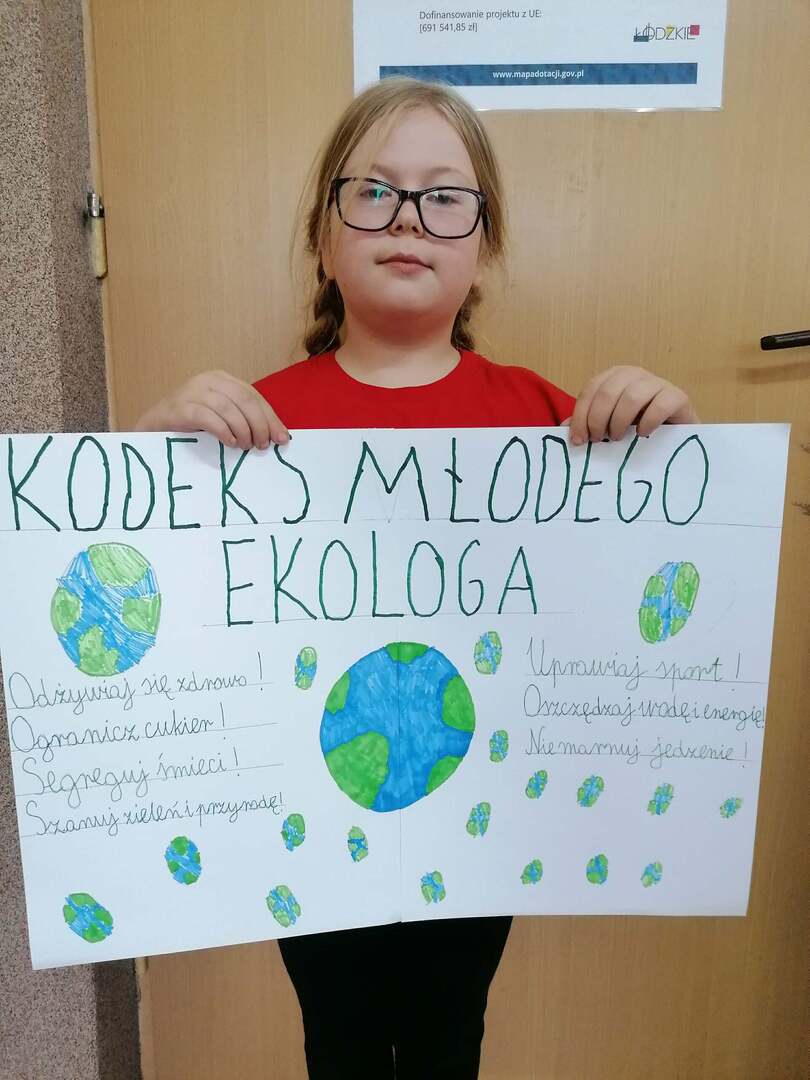 Dofinansowanie projektu z UE:
[691 541,85 zł]
ŁÓDZKIE
www.mapadotacji.gov.pl
KODEKS MŁODEGO
EKOLOGA
Odżywiaj się zdrowo!
Ogranicz cukier!
Segreguj śmieci!
Szanuj zieleń i przyrodę!
Uprawiaj sport!
Oszczędzaj wodę i energię!
Nie marnuj jedzenie!